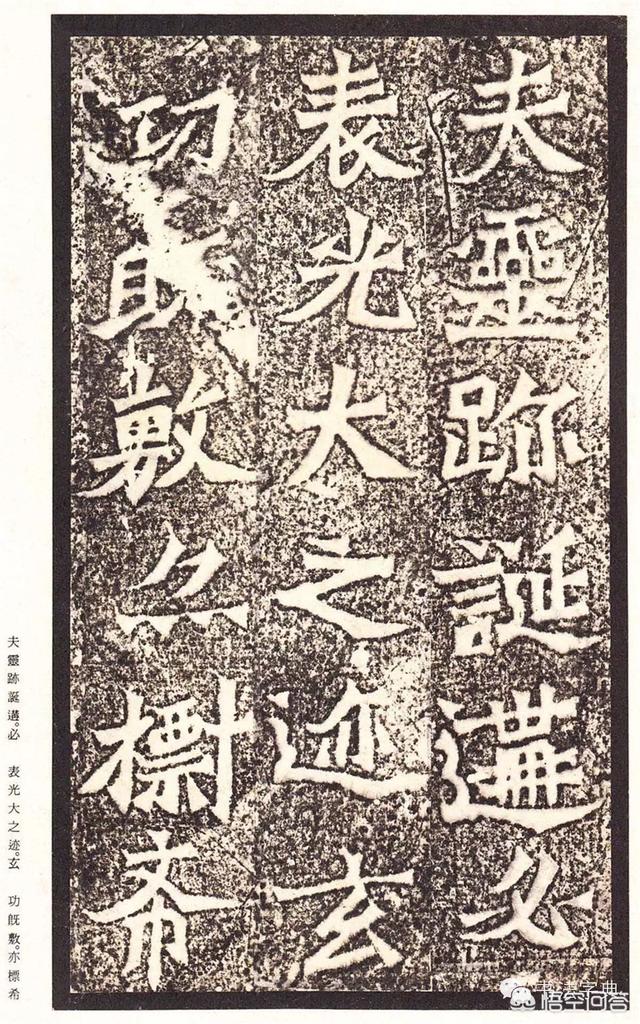 夫靈跡誕遘必
表光大之迹玄
功既敷亦標希
夫靈跡誕遘。必　表光大之迹。玄　功旣敷。亦標希
書法字典
悟空问答